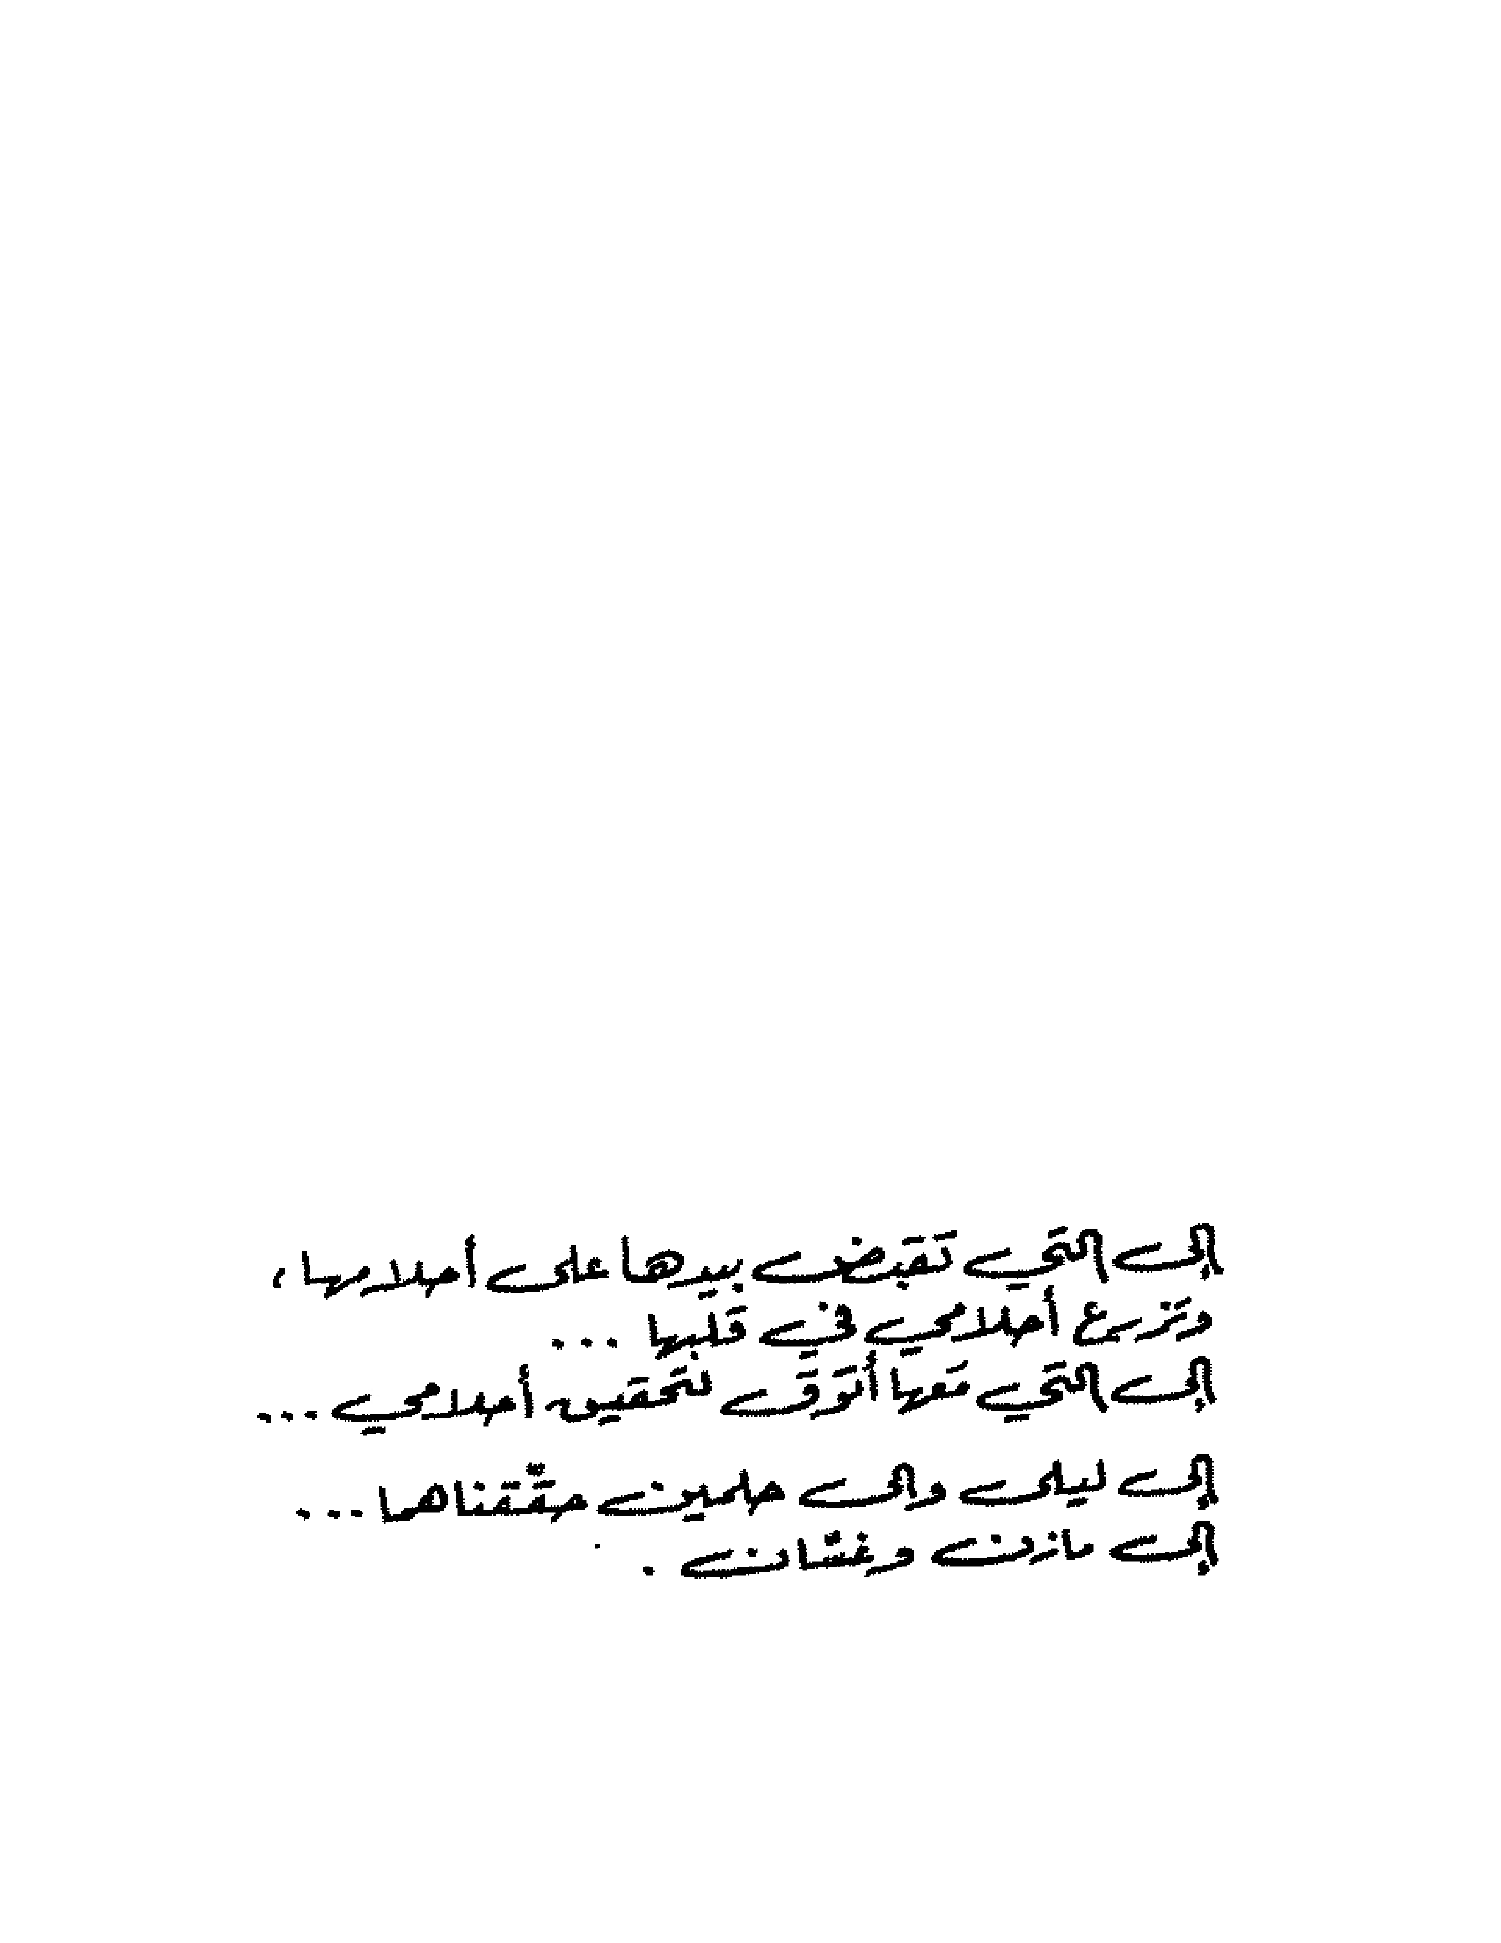 إلى التي تقبض بيدها على أحلامها،
وتزرع أحلامي في قلبها ...
إلى التي مَعها أتَوَق لتحقيق أحلامي ...
إلى ليلى والى حلمين حقّقناهما ...
إلى مازن وغسّان .